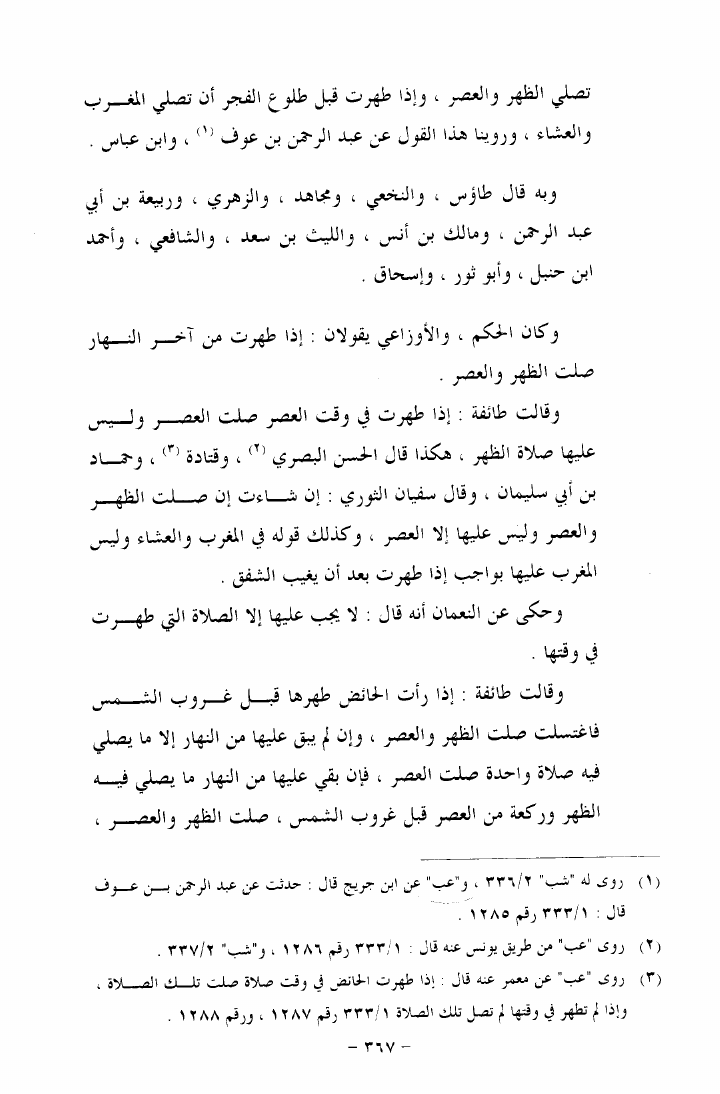 تصلي الظهر والعصر ، وإذا طهرت قبل طلوع الفجر أن تصلي المغرب
والعشاء ، وروينا هذا القول عن عبد الرحمن بن عوف (١) ، وابن عباس .
وبه قال طاؤس ، والنخعي ، ومجاهد ، والزهري ، وربيعة بن أبي
عبد الرحمن ، ومالك بن أنس ، والليث بن سعد ، والشافعي ، وأحمد
ابن حنبل ، وأبو ثور ، وإسحاق .
وكان الحكم ، والأوزاعي يقولان : إذا طهرت من آخر النهار
صلت الظهر والعصر .
وقالت طائفة : إذا طهرت في وقت العصر صلت العصر وليس
عليها صلاة الظهر ، هكذا قال الحسن البصري (٢) ، وقتادة (٣) ، وحماد
بن أبي سليمان ، وقال سفيان الثوري : إن شاءت إن صلت الظهر
والعصر وليس عليها إلا العصر ، وكذلك قوله في المغرب والعشاء وليس
المغرب عليها بواجب إذا طهرت بعد أن يغيب الشفق .
وحكى عن النعمان أنه قال : لا يجب عليها إلا الصلاة التي طهرت
في وقتها .
وقالت طائفة : إذا رأت الحائض طهرها قبل غروب الشمس
فاغتسلت صلت الظهر والعصر ، وإن لم يبق عليها من النهار إلا ما يصلي
فيه صلاة واحدة صلت العصر ، فإن بقي عليها من النهار ما يصلي فيه
الظهر وركعة من العصر قبل غروب الشمس ، صلت الظهر والعصر ،
(١) روى له "شب" ٣٣٦/٢ ، و"عب" عن ابن جريج قال : حدثت عن عبد الرحمن بن عوف
قال : ٣٣٣/١ رقم ١٢٨٥ .
(٢) روى "عب" من طريق يونس عنه قال : ٣٣٣/١ رقم ١٢٨٦ ، و"شب" ٣٣٧/٢ .
(٣) روى "عب" عن معمر عنه قال : إذا طهرت الحائض في وقت صلاة صلت تلك الصلاة ،
وإذا لم تطهر في وقتها لم تصل تلك الصلاة ٣٣٣/١ رقم ١٢٨٧ ، ورقم ١٢٨٨ .
– ٣٦٧ –